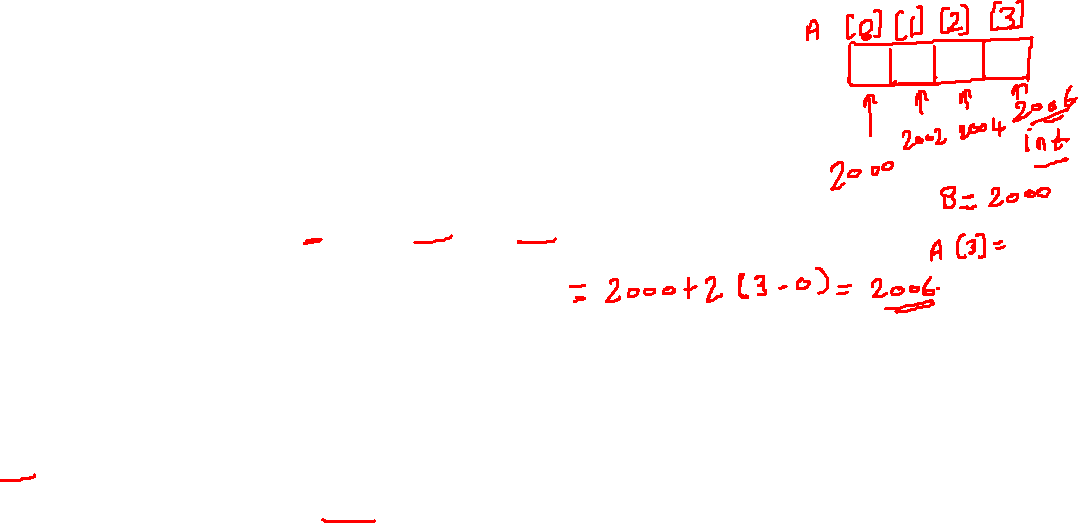 A [0] [1] [2] [3]
2000 2002 2004 2006
int
B = 2000
A [3] =
= 2000 + 2 (3 - 0) = 2006